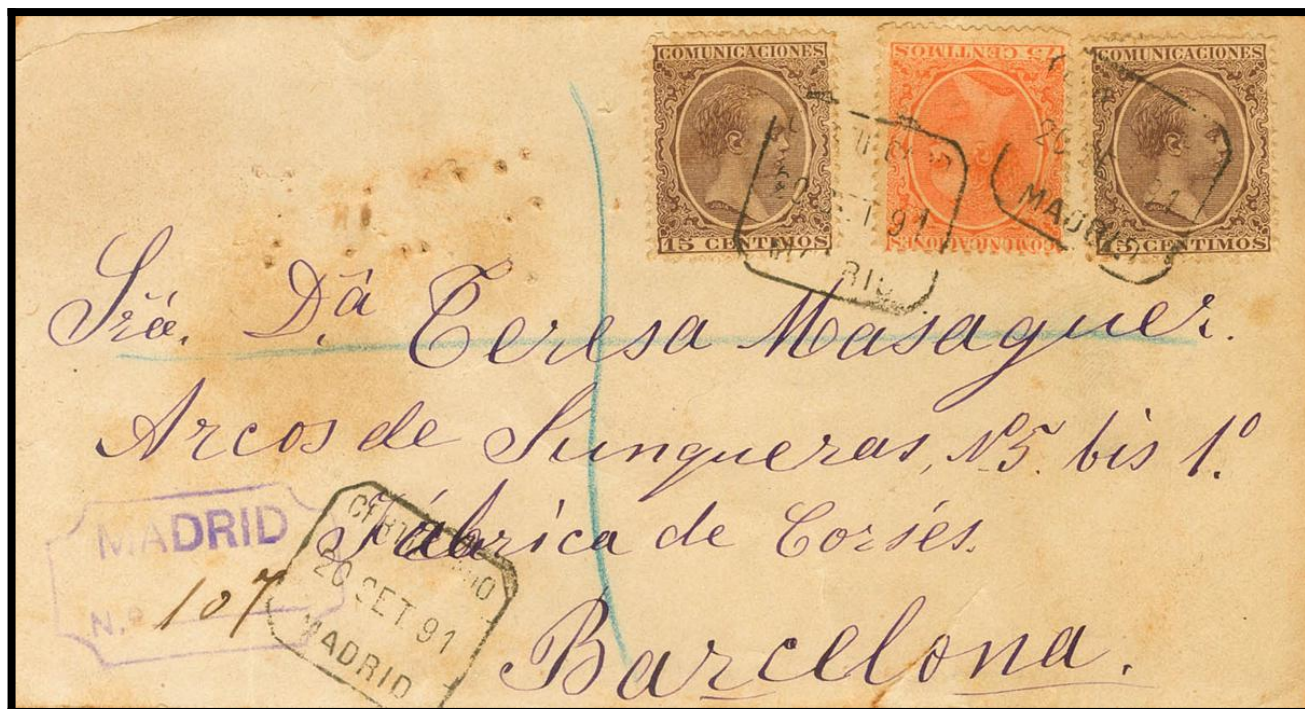 COMUNICACIONES
15 CENTIMOS
75 CENTIMOS
COMUNICACIONES
COMUNICACIONES
15 CENTIMOS
20 SET 91
MADRID
MADRID
Sra. Dª Teresa Masaguer.
Arcos de Junqueras, Nº 5. bis 1º
Fábrica de Corsés.
Barcelona.
MADRID
N.º 107
CERTIFICADO
20 SET. 91
MADRID